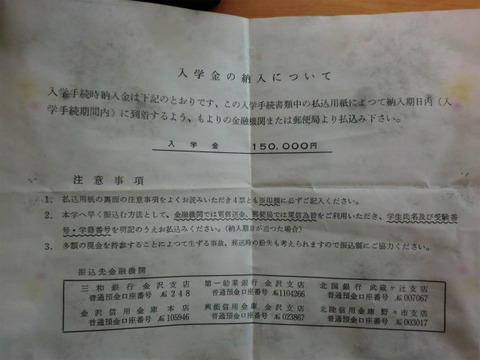 入学金の納入について
入学手続時納入金は下記のとおりです、この入学手続書類中の払込用紙によつて納入期日内（入
学手続期間内）に到着するよう、もよりの金融機関または郵便局より払込み下さい。
入学金 150,000円
注意事項
1. 払込用紙の裏面の注意事項をよくお読みいただき4票とも※印欄に必ずご記入ください。
2. 本学へ早く振込む方法として、金融機関では電信送金、郵便局では電信為替をご利用いただき、学生氏名及び受験番
号・学籍番号を明記のうえお払込みください。（納入期日が迫つた場合）
3. 多額の現金を持参することによつて生ずる事故、郵送時の紛失も考えられますので振込制にご協力ください。
振込先金融機関
三和銀行 金沢支店 第一勧業銀行 金沢支店 北国銀行 武蔵ヶ辻支店
普通預金口座番号 №248 普通預金口座番号 №1104266 普通預金口座番号 №007067
金沢信用金庫 本店 興能信用金庫 金沢支店 北陸信用金庫 野々市支店
普通預金口座番号 №105946 普通預金口座番号 №023867 普通預金口座番号 №003017